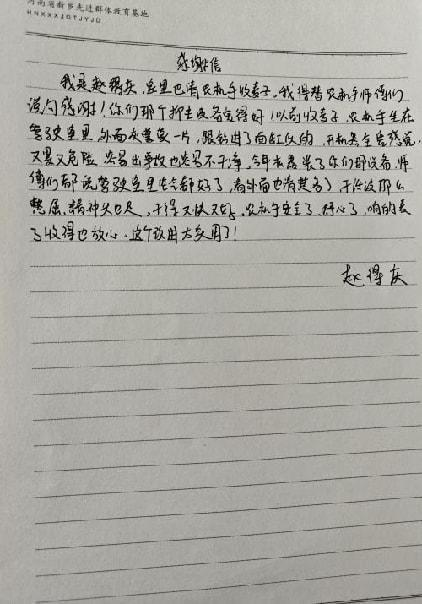 河南省新乡先进群体教育基地
HNXXXJQTJYJD
感谢信
我是赵得庆,家里也有农机手收麦子。我得替农机手师傅们
说句感谢!你们那个抑尘设备真得好!以前收麦子,农机手坐在
驾驶室里,外面灰蒙蒙一片,跟钻进了面缸似的,开机
又累又危险,容易出事故也收不干净。今年机装了你们那设备,师
傅们都说驾驶室里去都好了,看外面也清楚多了,干活没那么
憋屈,精神头也足,干得又快又好。农机手安全了,舒心了,咱的麦
子收得也放心。这个改进大多用了!
赵得庆